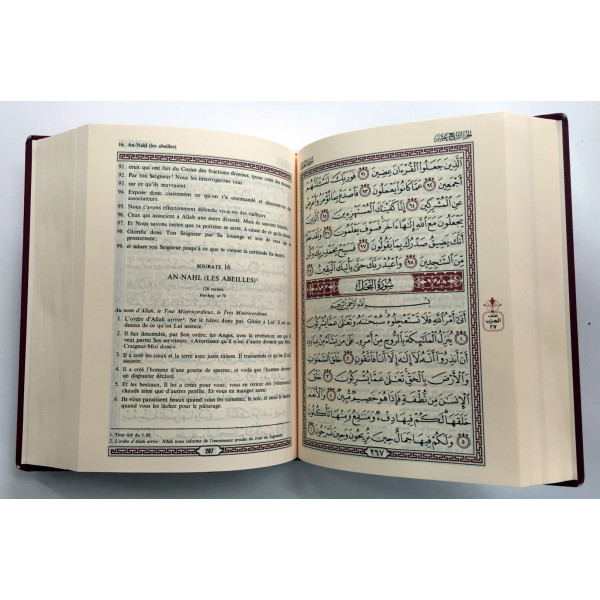 16. An-Nahl (les abeilles)
91. ceux qui ont fait du Coran des fractions diverses,
92. Par ton Seigneur! Nous les interrogerons tous
93. sur ce qu'ils œuvraient.
94. Expose donc clairement ce qu'on t'a commandé et
associateurs.
95. Nous t'avons effectivement défendu vis-à-vis des railleurs.
96. Ceux qui associent à Allah une autre divinité. Mais ils sauront
97. Et Nous savons certes que ta poitrine se serre, à cause de
98. Glorifie donc Ton Seigneur par Sa louange et sois de ceux qui se
prosternent;
99. et adore ton Seigneur jusqu'à ce que te vienne la certitude
SOURATE 16
AN-NAHL (LES ABEILLES)¹
128 versets
Pré-hég. n° 70
Au nom d'Allah, le Tout Miséricordieux, le Très Miséricordieux.
1. L'ordre d'Allah arrive². Ne le hâtez donc pas. Gloire à Lui! Il est au-
dessus de ce qu'on Lui associe.
2. Il fait descendre, par Son ordre, les Anges, avec la révélation, sur qui Il
veut parmi Ses serviteurs: «Avertissez qu'il n'est d'autre divinité que Moi.
Craignez-Moi donc».
3. Il a créé les cieux et la terre avec juste raison. Il transcende ce qu'on [Lui]
associe.
4. Il a créé l'homme d'une goutte de sperme; et voilà que l'homme devient
un disputeur déclaré.
5. Et les bestiaux, Il les a créés pour vous; vous en retirez des [vêtements]
chauds ainsi que d'autres profits. Et vous en mangez aussi.
6. Ils vous paraissent beaux quand vous les ramenez, le soir, et aussi le matin
quand vous les lâchez pour le pâturage.
1. Titre tiré du v.68.
2. L'ordre d'Allah arrive: Allah nous informe de l'imminence proche du Jour du Jugement.
267
الجزء الرابع عشر
الَّذِينَ جَعَلُوا الْقُرْءَانَ عِضِينَ ٩١ فَوَرَبِّكَ لَنَسْـَٔلَنَّهُمْ
أَجْمَعِينَ ٩٢ عَمَّا كَانُوا يَعْمَلُونَ ٩٣ فَاصْدَعْ بِمَا تُؤْمَرُ وَأَعْرِضْ
عَنِ الْمُشْرِكِينَ ٩٤ إِنَّا كَفَيْنَاكَ الْمُسْتَهْزِءِينَ ٩٥ الَّذِينَ
يَجْعَلُونَ مَعَ اللَّهِ إِلَٰهًا ءَاخَرَ فَسَوْفَ يَعْلَمُونَ ٩٦ وَلَقَدْ نَعْلَمُ
أَنَّكَ يَضِيقُ صَدْرُكَ بِمَا يَقُولُونَ ٩٧ فَسَبِّحْ بِحَمْدِ رَبِّكَ وَكُن
مِّنَ السَّاجِدِينَ ٩٨ وَاعْبُدْ رَبَّكَ حَتَّىٰ يَأْتِيَكَ الْيَقِينُ ٩٩
سُورَةُ النَّحْلِ
بِسْمِ اللَّهِ الرَّحْمَٰنِ الرَّحِيمِ
أَتَىٰ أَمْرُ اللَّهِ فَلَا تَسْتَعْجِلُوهُ سُبْحَانَهُ وَتَعَالَىٰ عَمَّا يُشْرِكُونَ ١
يُنَزِّلُ الْمَلَائِكَةَ بِالرُّوحِ مِنْ أَمْرِهِ عَلَىٰ مَن يَشَاءُ مِنْ عِبَادِهِ
أَنْ أَنذِرُوا أَنَّهُ لَا إِلَٰهَ إِلَّا أَنَا فَاتَّقُونِ ٢ خَلَقَ السَّمَاوَاتِ
وَالْأَرْضَ بِالْحَقِّ تَعَالَىٰ عَمَّا يُشْرِكُونَ ٣ خَلَقَ
الْإِنسَانَ مِن نُّطْفَةٍ فَإِذَا هُوَ خَصِيمٌ مُّبِينٌ ٤ وَالْأَنْعَامَ
خَلَقَهَا لَكُمْ فِيهَا دِفْءٌ وَمَنَافِعُ وَمِنْهَا تَأْكُلُونَ ٥
وَلَكُمْ فِيهَا جَمَالٌ حِينَ تُرِيحُونَ وَحِينَ تَسْرَحُونَ ٦
نصف
الحزب
٢٧
٢٦٧